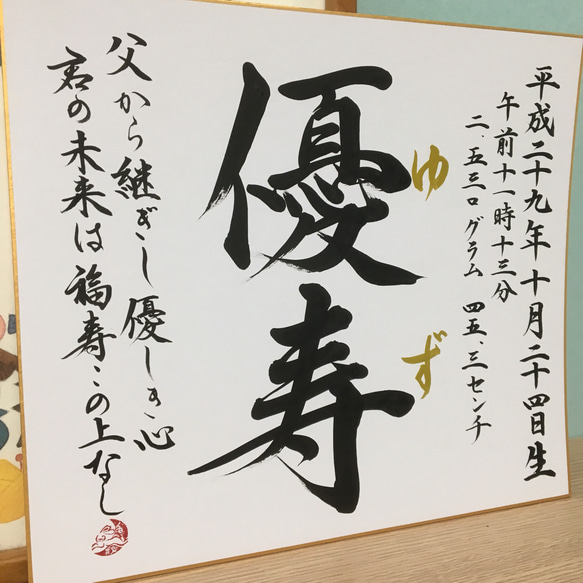 平成二十九年十月二十四日生
午前十一時十三分
二、五三ログラム 四五、三センチ
優寿
ゆず
父から継ぎし優しき心
君の未来は福寿この上なし